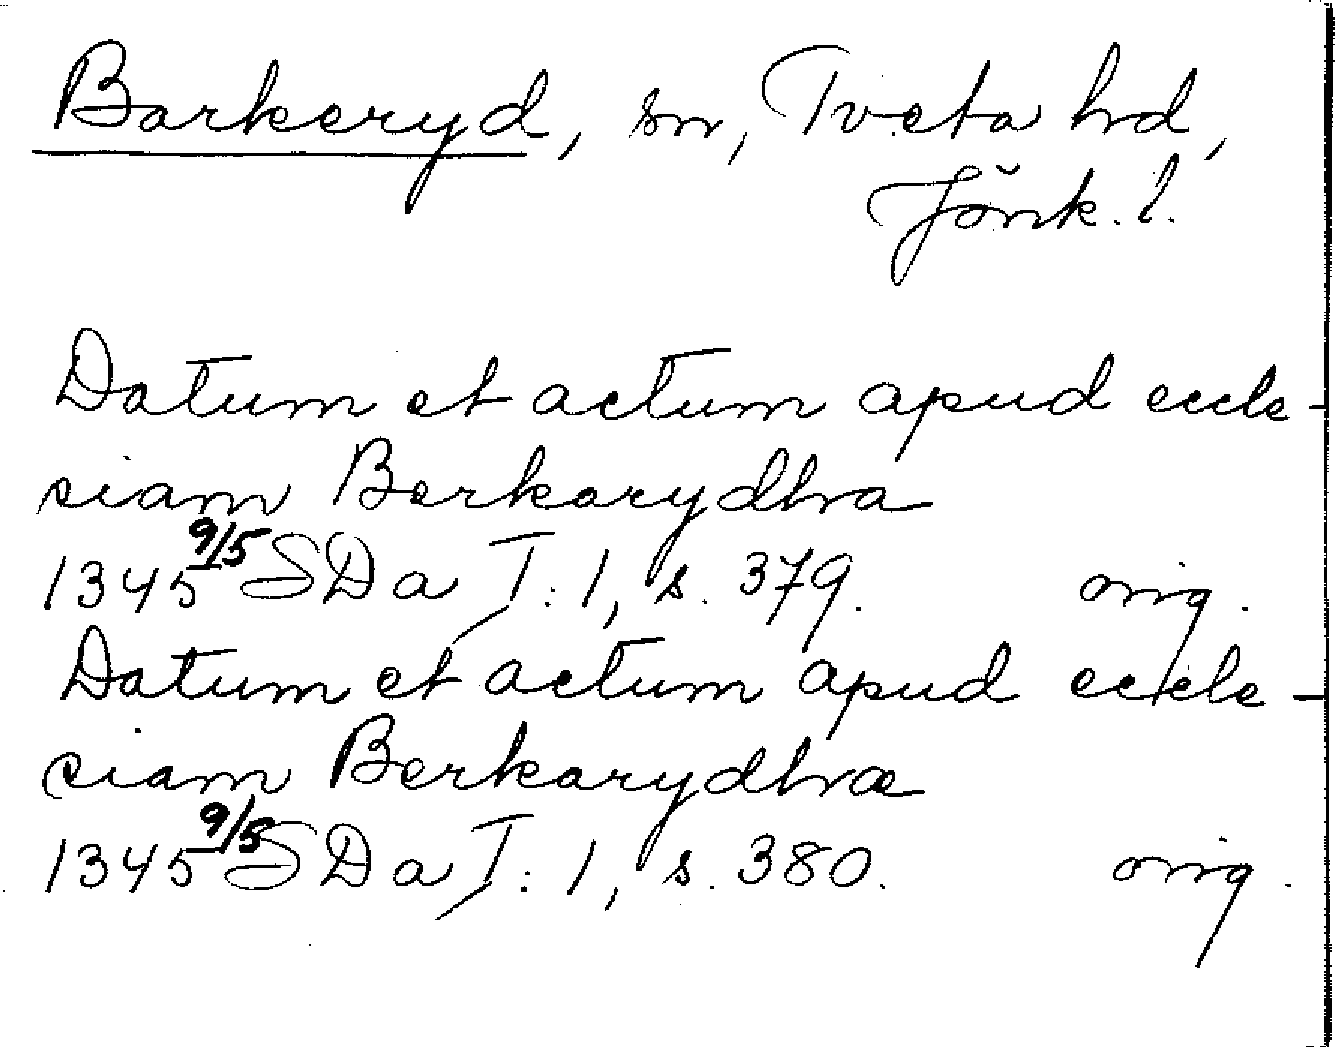 Barkeryd, sn, Tveta hd,
Jönk. l.
Datum et actum apud eccle-
siam Berkarydhra
1345 9/5 SDa I: 1, s. 379. orig.
Datum et actum apud eccle-
siam Berkarydhræ
1345 9/5 SDa I: 1, s. 380. orig.